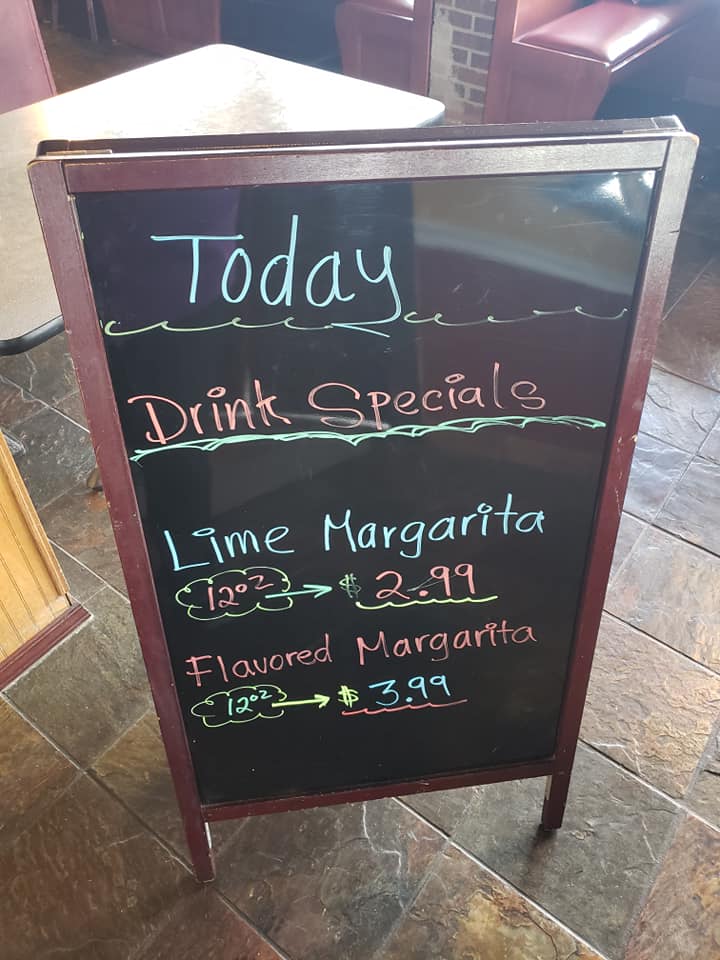 Today
Drink Specials
Lime Margarita
12oz → $2.99
Flavored Margarita
12oz → $3.99